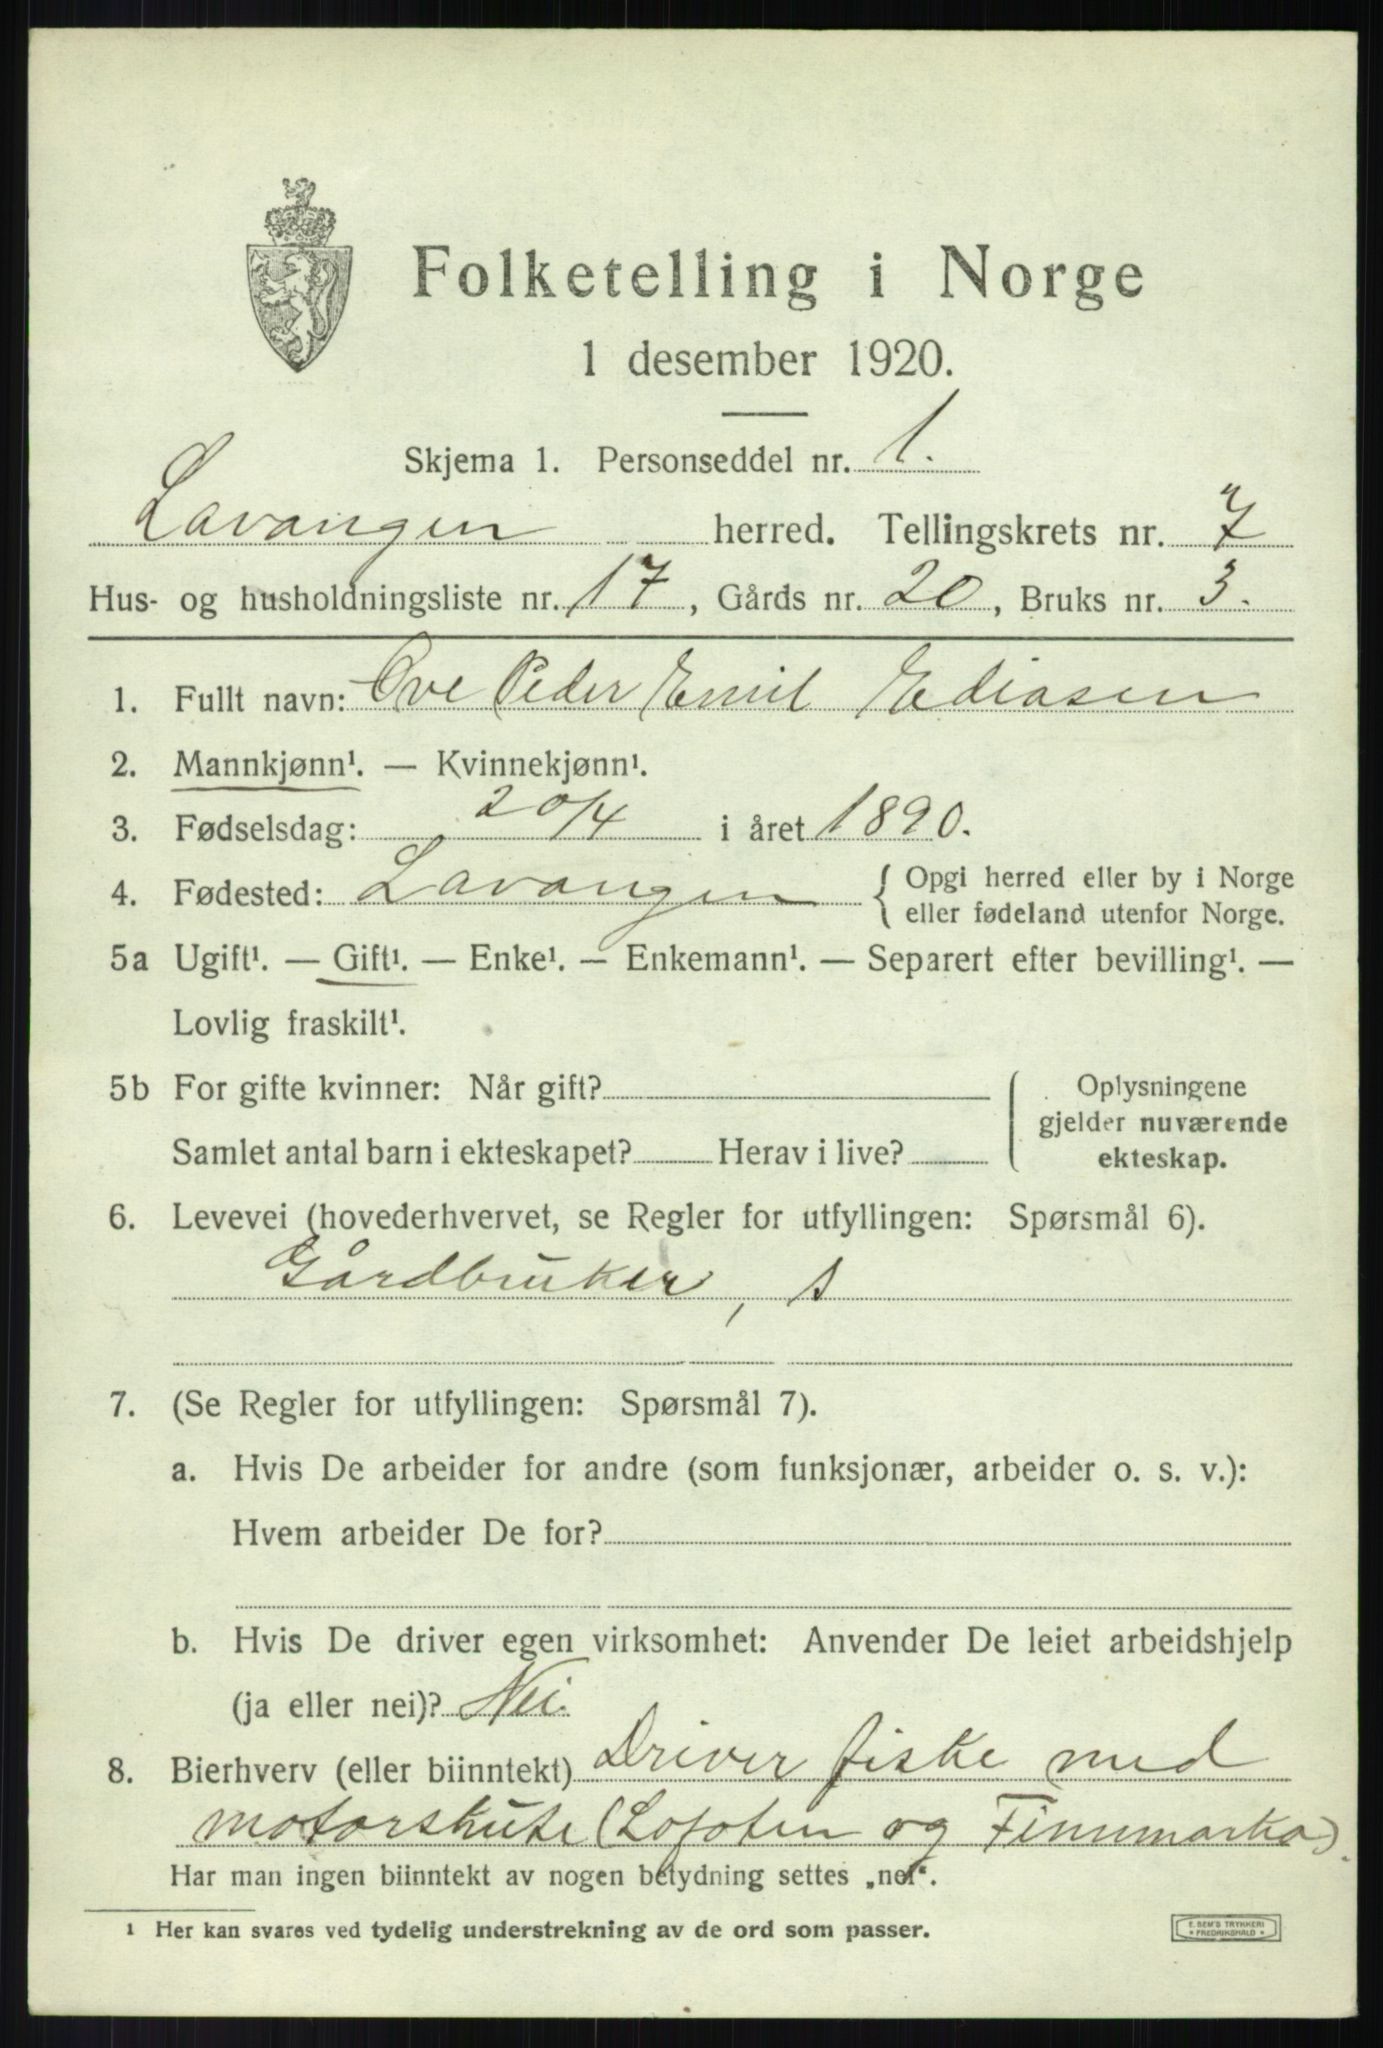 Folketelling i Norge
1 desember 1920.
Skjema 1. Personseddel nr. 1.
Lavangen herred. Tellingskrets nr. 7
Hus- og husholdningsliste nr. 17, Gårds nr. 20, Bruks nr. 3.
1. Fullt navn: Ove Peder Emil Ediasen
2. Mannkjønn¹. — Kvinnekjønn¹.
3. Fødselsdag: 20/4 i året 1890.
4. Fødested: Lavangen { Opgi herred eller by i Norge
eller fødeland utenfor Norge.
5a Ugift¹. — Gift¹. — Enke¹. — Enkemann¹. — Separert efter bevilling¹. —
Lovlig fraskilt¹.
5b For gifte kvinner: Når gift? Oplysningene
gjelder nuværende
Samlet antal barn i ekteskapet? Herav i live? ekteskap.
6. Levevei (hovederhvervet, se Regler for utfyllingen: Spørsmål 6).
Gårdbruker, s
7. (Se Regler for utfyllingen: Spørsmål 7).
a. Hvis De arbeider for andre (som funksjonær, arbeider o. s. v.):
Hvem arbeider De for?
b. Hvis De driver egen virksomhet: Anvender De leiet arbeidshjelp
(ja eller nei)? Nei.
8. Bierhverv (eller biinntekt) Driver fiske med
motorskute (Lofoten og Finnmarka).
Har man ingen biinntekt av nogen betydning settes „nei“.
¹ Her kan svares ved tydelig understrekning av de ord som passer.
E. SEM'S TRYKKERI
* FREDRIKSHALD *